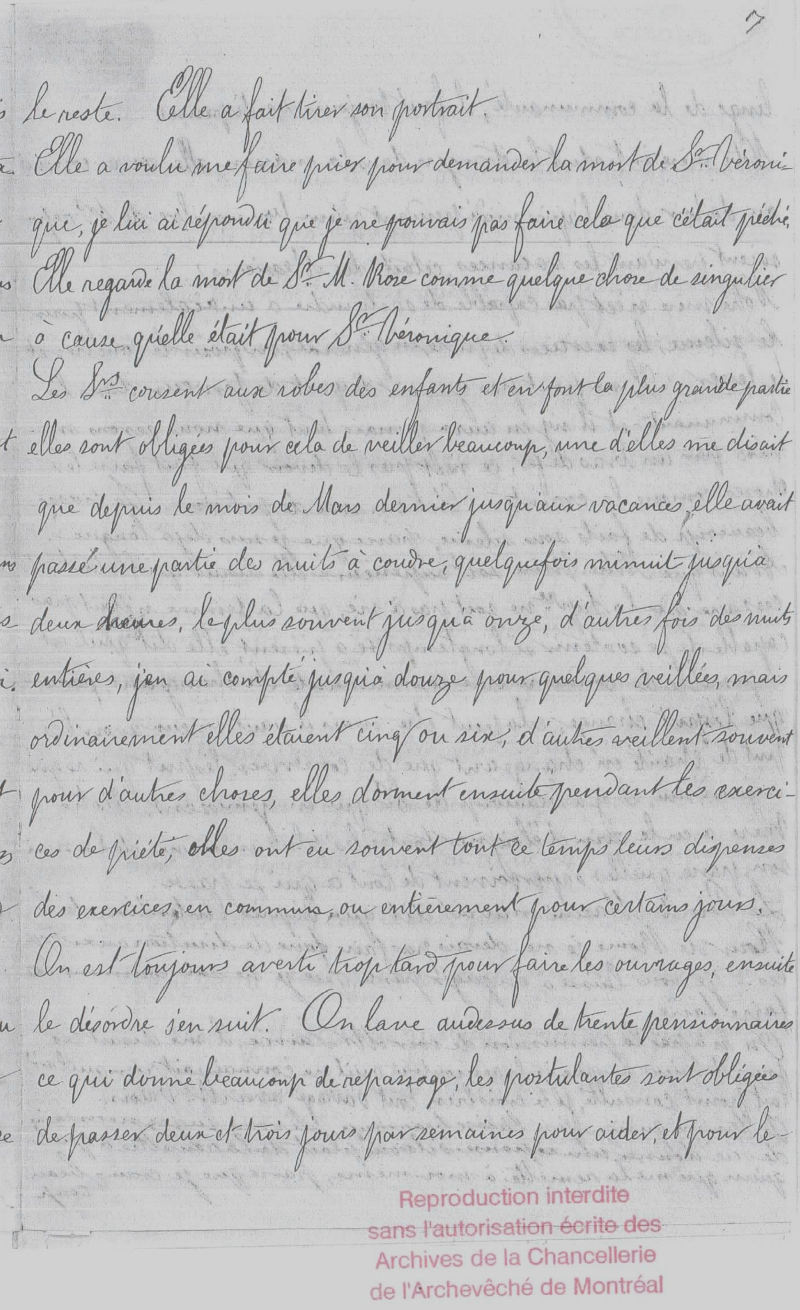 7
le reste. Elle a fait tirer son portrait.
Elle a voulu me faire prier pour demander la mort de Sr. Véroni-
que, je lui ai répondu que je ne pouvais pas faire cela que c'était péché,
Elle regarde la mort de Sr. M. Rose comme quelque chose de singulier
à cause qu'elle était pour Sr. Véronique.
Les Srs cousent aux robes des enfants et en font la plus grande partie
elles sont obligées pour cela de veiller beaucoup, une d'elles me disait
que depuis le mois de Mars dernier jusqu'aux vacances, elle avait
passé une partie des nuits à coudre, quelquefois minuit jusqu'à
deux heures, le plus souvent jusqu'à onze, d'autres fois des nuits
entières, j'en ai compté jusqu'à douze pour quelques veillées, mais
ordinairement elles étaient cinq ou six, d'autres veillent souvent
pour d'autres choses, elles dorment ensuite pendant les exerci-
ces de piété, elles ont eu souvent tout ce temps leurs dispenses
des exercices, en commun, ou entièrement pour certains jours.
On est toujours averti trop tard pour faire les ouvrages, ensuite
le désordre s'en suit. On lave audessus de trente pensionnaires
ce qui donne beaucoup de repassage, les postulantes sont obligées
de passer deux et trois jours par semaines pour aider, et pour le
Reproduction interdite
sans l'autorisation écrite des
Archives de la Chancellerie
de l'Archevêché de Montréal